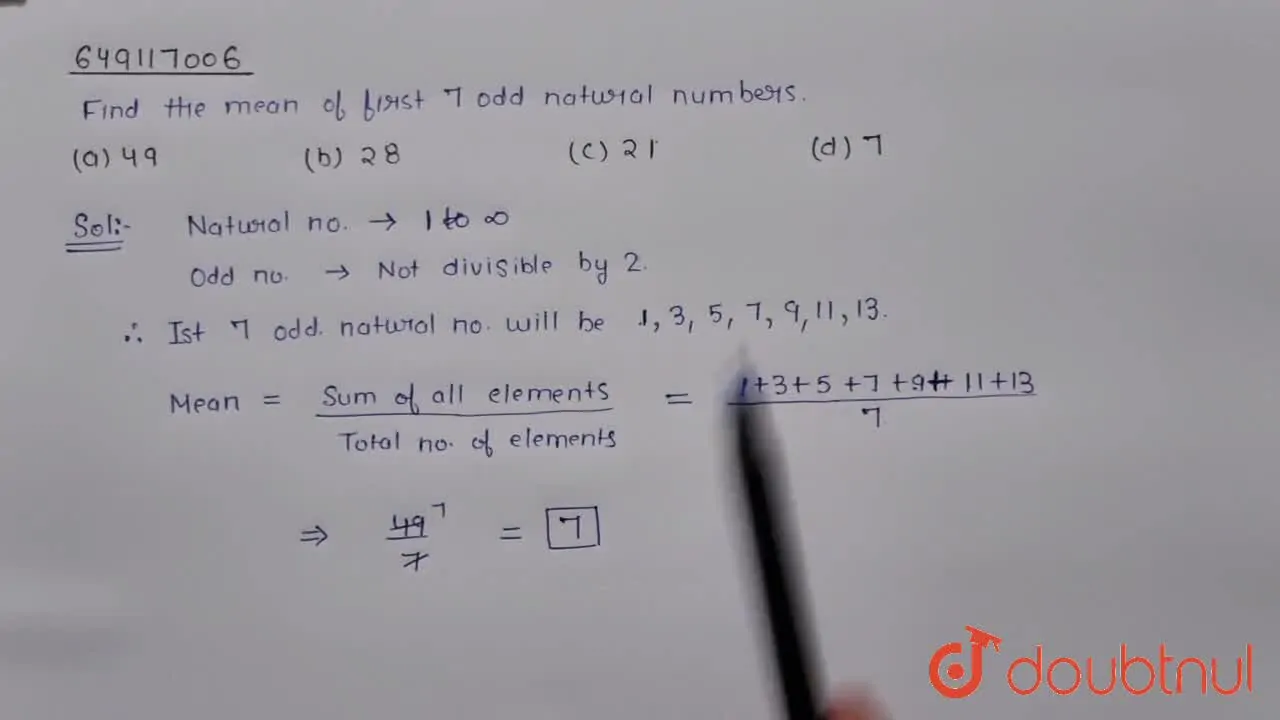 649117006
Find the mean of first 7 odd natural numbers.
(a) 49 (b) 28 (c) 21 (d) 7
Sol:- Natural no. → 1 to ∞
Odd no. → Not divisible by 2.
∴ Ist 7 odd. natural no. will be 1, 3, 5, 7, 9, 11, 13.
Mean = Sum of all elements / Total no. of elements = 1+3+5+7+9+11+13 / 7
⇒ 49 7 / 7 = 7
doubtnut